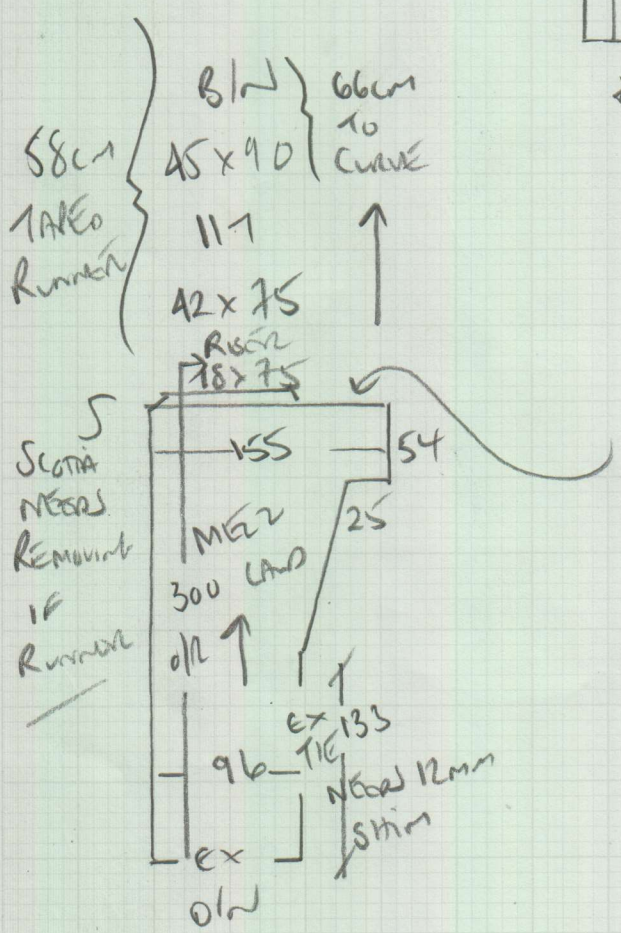 58CM
TAPED
RUNNER
B/N
45 x 90
117
42 x 75
66CM
TO
CURVE
RISER
18 x 75
155
54
25
SCOTIA
NEEDS
REMOVING
IF
RUNNER
MEZZ
LAND
300
O/R
96
EX
TILE
133
NEEDS 12MM
SHIM
EX